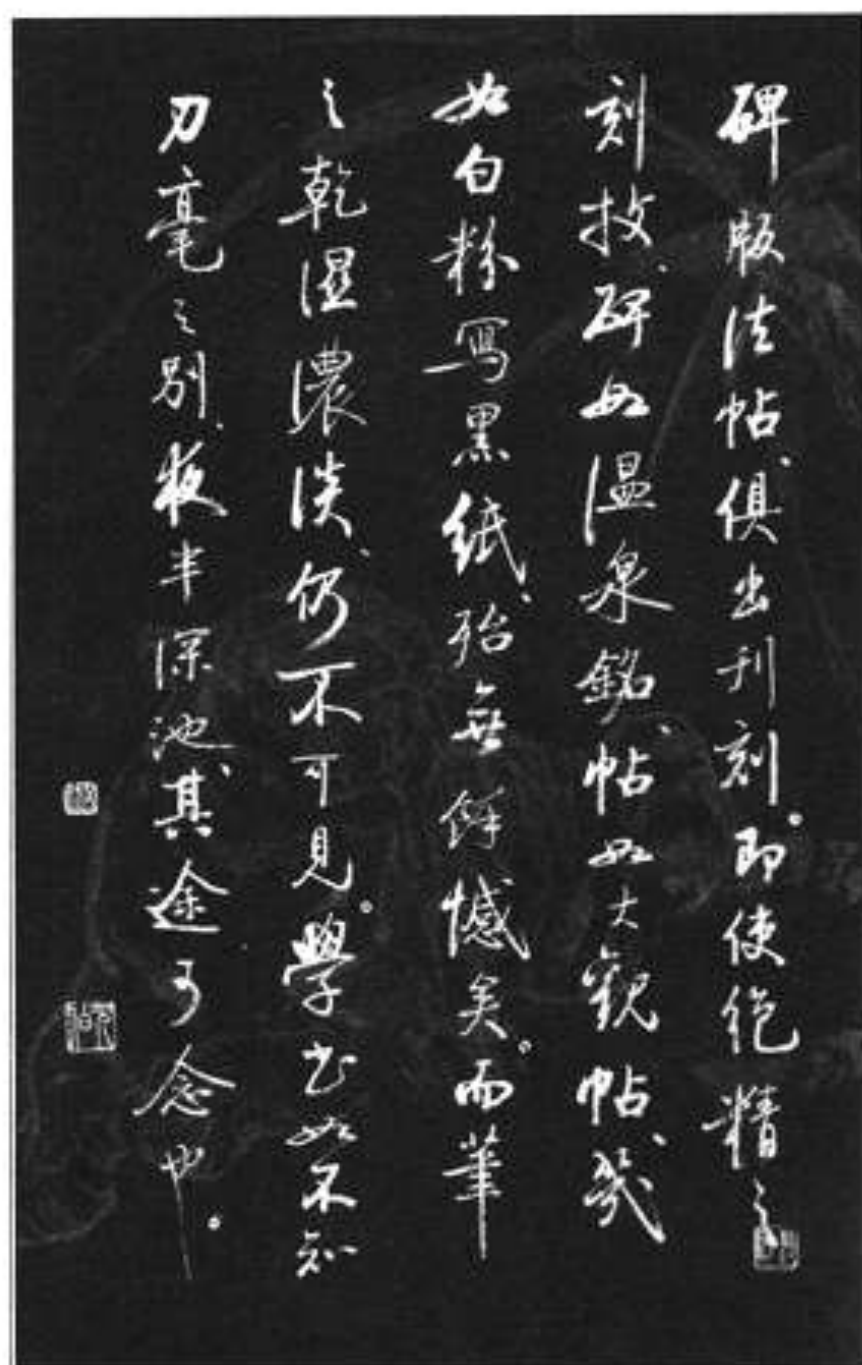 碑版法帖、俱出刊刻。即使絶精之
刻技、碑如温泉銘、帖如大觀帖、幾
如白粉寫黑紙、殆無餘憾矣。而筆
之乾濕濃淡、仍不可見。學書如不知
刀毫之別、夜半深池、其途可念也。